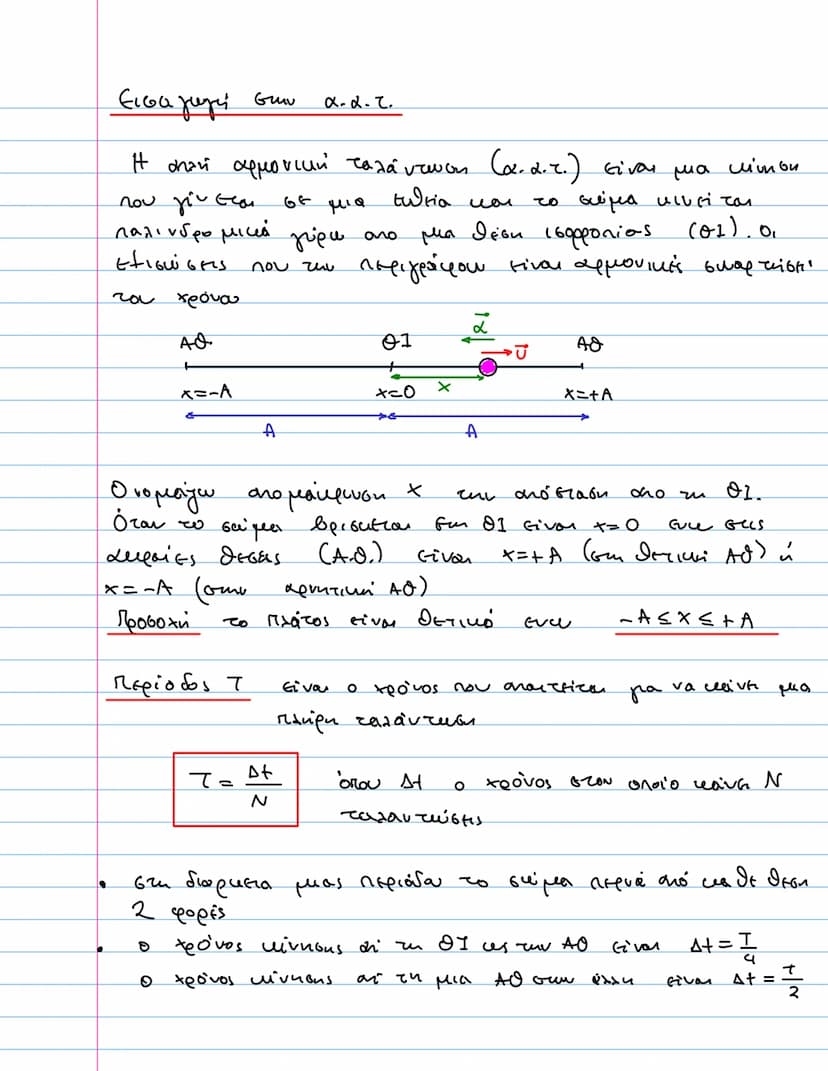 Εισαγωγή στην α.α.τ.
Η απλή αρμονική ταλάντωση (α.α.τ.) είναι μια κίνηση
που γίνεται σε μια ευθεία και το σώμα κινείται
παλινδρομικά γύρω απο μια θέση ισορροπίας (ΘΙ). Οι
εξισώσεις που την περιγράφουν είναι αρμονικές συναρτήσεις
του χρόνου
ΑΘ ΘΙ α υ ΑΘ
x=-A x=0 x x=+A
A A
Ονομάζω απομάκρυνση x την απόσταση απο τη ΘΙ.
Όταν το σώμα βρισκεται στη ΘΙ είναι x=0 ενω στις
ακραίες θεσεις (Α.Θ.) είναι x=+A (στη θετική ΑΘ) ή
x=-A (στην αρνητική ΑΘ)
Προσοχή το πλάτος είναι θετικό ενω -A ≤ x ≤ +A
Περίοδος T είναι ο χρόνος που απαιτείται για να κάνει μια
πλήρη ταλάντωση
T = Δt/N όπου Δt ο χρόνος στον οποίο κάνει N
ταλαντώσεις
• στη διαρκεια μιας περιόδου το σώμα περνά από καθε θεση
2 φορές
• ο χρόνος κίνησης απ τη ΘΙ ως την ΑΘ είναι Δt = T/4
ο χρόνος κίνησης απ τη μια ΑΘ στην άλλη είναι Δt = T/2